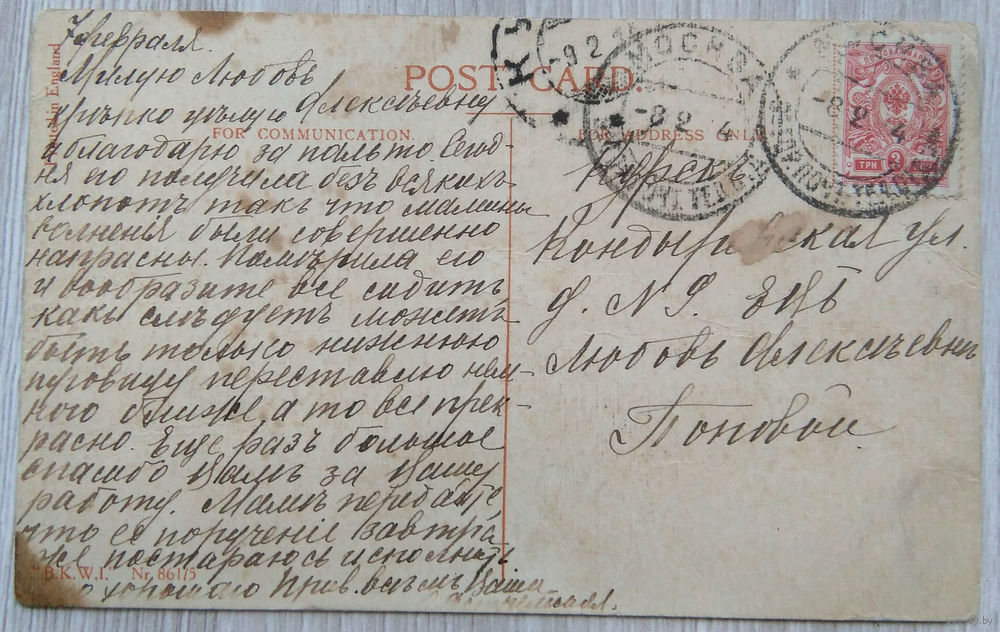 7 февраля.
Милую Любовь
Алексѣевну
крѣпко цѣлую
и благодарю за пальто. Сегод-
ня его получила безъ всякихъ
хлопотъ такъ что мамины
волненья были совершенно
напрасны. Помѣрила его
и вообразите все сидитъ
какъ слѣдуетъ можетъ
быть только нижнюю
пуговицу переставлю нем-
ного ближе а то все прек-
расно. Еще разъ большое
спасибо Вамъ за Вашу
работу. Мамѣ передайте,
что ее порученіе завтра
же постараюсь исполнить
хорошаго Прив. всѣмъ Ваша
POST CARD.
FOR COMMUNICATION.
FOR ADDRESS ONLY
in England
B.K.W.I. Nr. 861/5
Курскъ
Кондыревская ул.
д. № 9. ЕВБ
Любовь Алексѣевнѣ
Поповой
КУ
-9 2
МОСКВА
-8 2 4
МОСКВА
-8 2 4
ТРИ 3 КОП